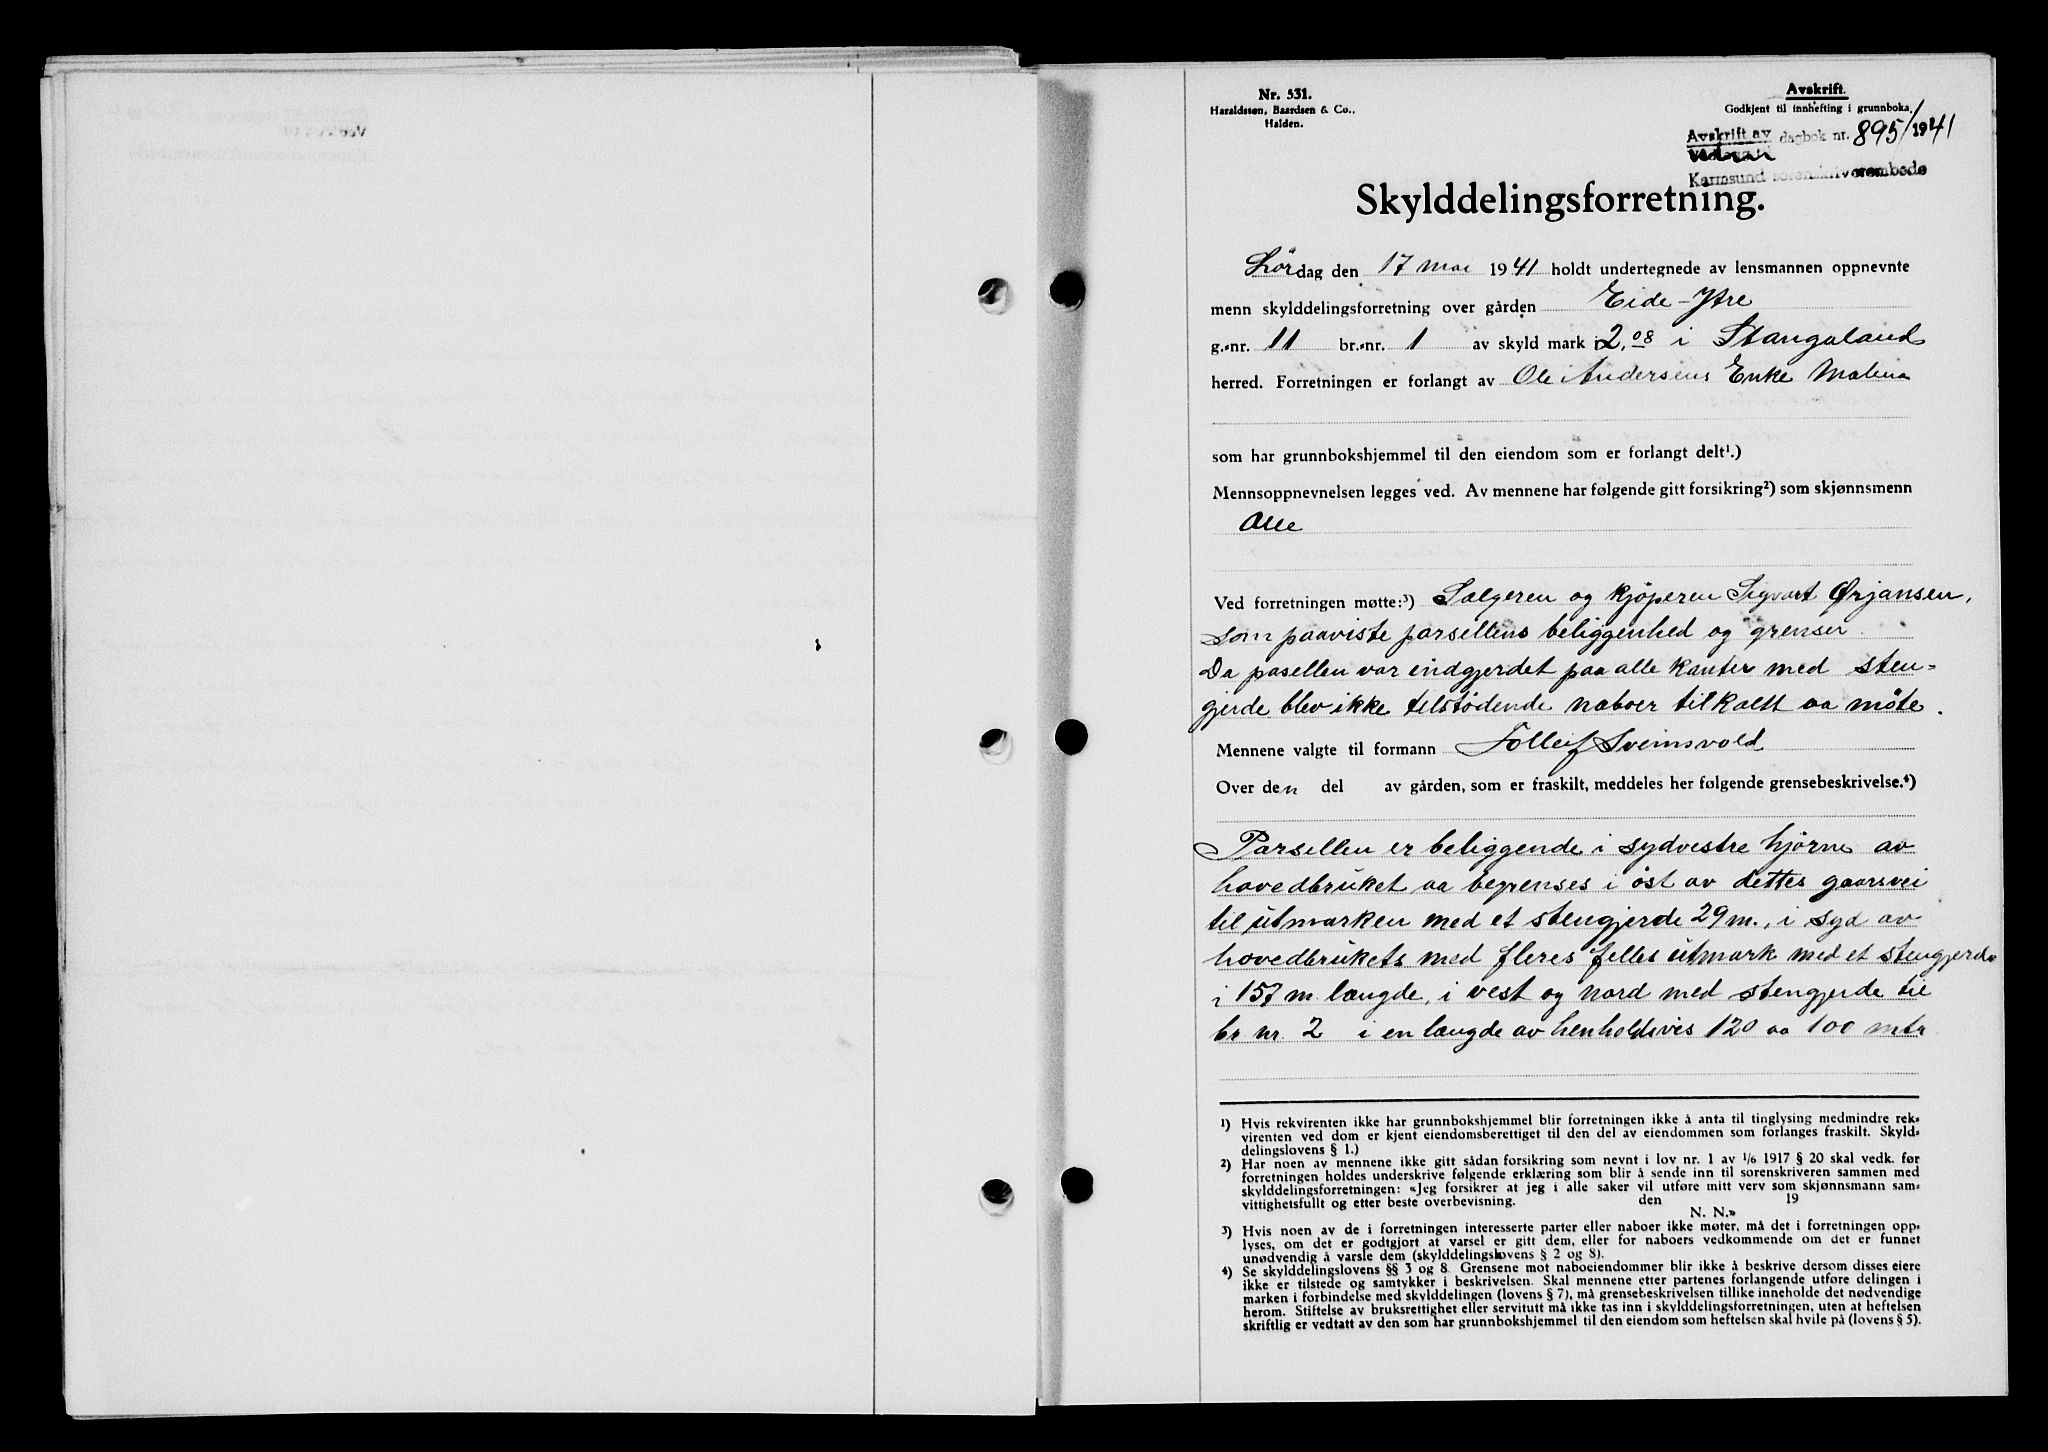 Nr. 531.
Haraldssøn, Baardsen & Co.,
Halden.
Avskrift.
Godkjent til innhefting i grunnboka.
Avskrift av dagbok nr. 895/1941
Karmsund sorenskriverembede
Skylddelingsforretning.
Lördag den 17 mai 1941 holdt undertegnede av lensmannen oppnevnte
menn skylddelingsforretning over gården Eide-Ytre
g.-nr. 11 br.-nr. 1 av skyld mark 2,08 i Stangaland
herred. Forretningen er forlangt av Ole Andersens Enke Malena
som har grunnbokshjemmel til den eiendom som er forlangt delt¹.)
Mennsoppnevnelsen legges ved. Av mennene har følgende gitt forsikring²) som skjønnsmenn
Alle
Ved forretningen møtte:³) Sælgeren og kjöperen Sigvart Ørjansen,
som paaviste parsellens beliggenhed og grenser.
Da pasellen var indgjerdet paa alle kanter med sten-
gjerde blev ikke tilstödende naboer tilkalt aa möte.
Mennene valgte til formann Tolleif Sveinsvold
Over den del av gården, som er fraskilt, meddeles her følgende grensebeskrivelse.⁴)
Parsellen er beliggende i sydvestre hjörne av
hovedbruket aa begrenses i öst av dettes gaarsvei
til utmarken med et stengjerde 29 m., i syd av
hovedbrukets med fleres felles utmark med et stengjerde
i 157 m. længde, i vest og nord med stengjerde til
br nr. 2 i en længde av henholdsvis 120 aa 100 mtr
¹) Hvis rekvirenten ikke har grunnbokshjemmel blir forretningen ikke å anta til tinglysing medmindre rek-
virenten ved dom er kjent eiendomsberettiget til den del av eiendommen som forlanges fraskilt. Skyld-
delingslovens § 1.)
²) Har noen av mennene ikke gitt sådan forsikring som nevnt i lov nr. 1 av 1/6 1917 § 20 skal vedk. før
forretningen holdes underskrive følgende erklæring som blir å sende inn til sorenskriveren sammen med
skylddelingsforretningen: «Jeg forsikrer at jeg i alle saker vil utføre mitt verv som skjønnsmann sam-
vittighetsfullt og etter beste overbevisning. den 19
N. N.»
³) Hvis noen av de i forretningen interesserte parter eller naboer ikke møter, må det i forretningen opp-
lyses, om det er godtgjort at varsel er gitt dem, eller for naboers vedkommende om det er funnet
unødvendig å varsle dem (skylddelingslovens § 2 og 8).
⁴) Se skylddelingslovens §§ 3 og 8. Grensene mot naboeiendommer blir ikke å beskrive dersom disses eiere
ikke er tilstede og samtykker i beskrivelsen. Skal mennene etter partenes forlangende utføre delingen i
marken i forbindelse med skylddelingen (lovens § 7), må grensebeskrivelsen tillike inneholde det nødvendige
herom. Stiftelse av bruksrettighet eller servitutt må ikke tas inn i skylddelingsforretningen, uten at heftelsen
skriftlig er vedtatt av den som har grunnbokshjemmel til den eiendom som heftelsen skal hvile på (lovens § 5).